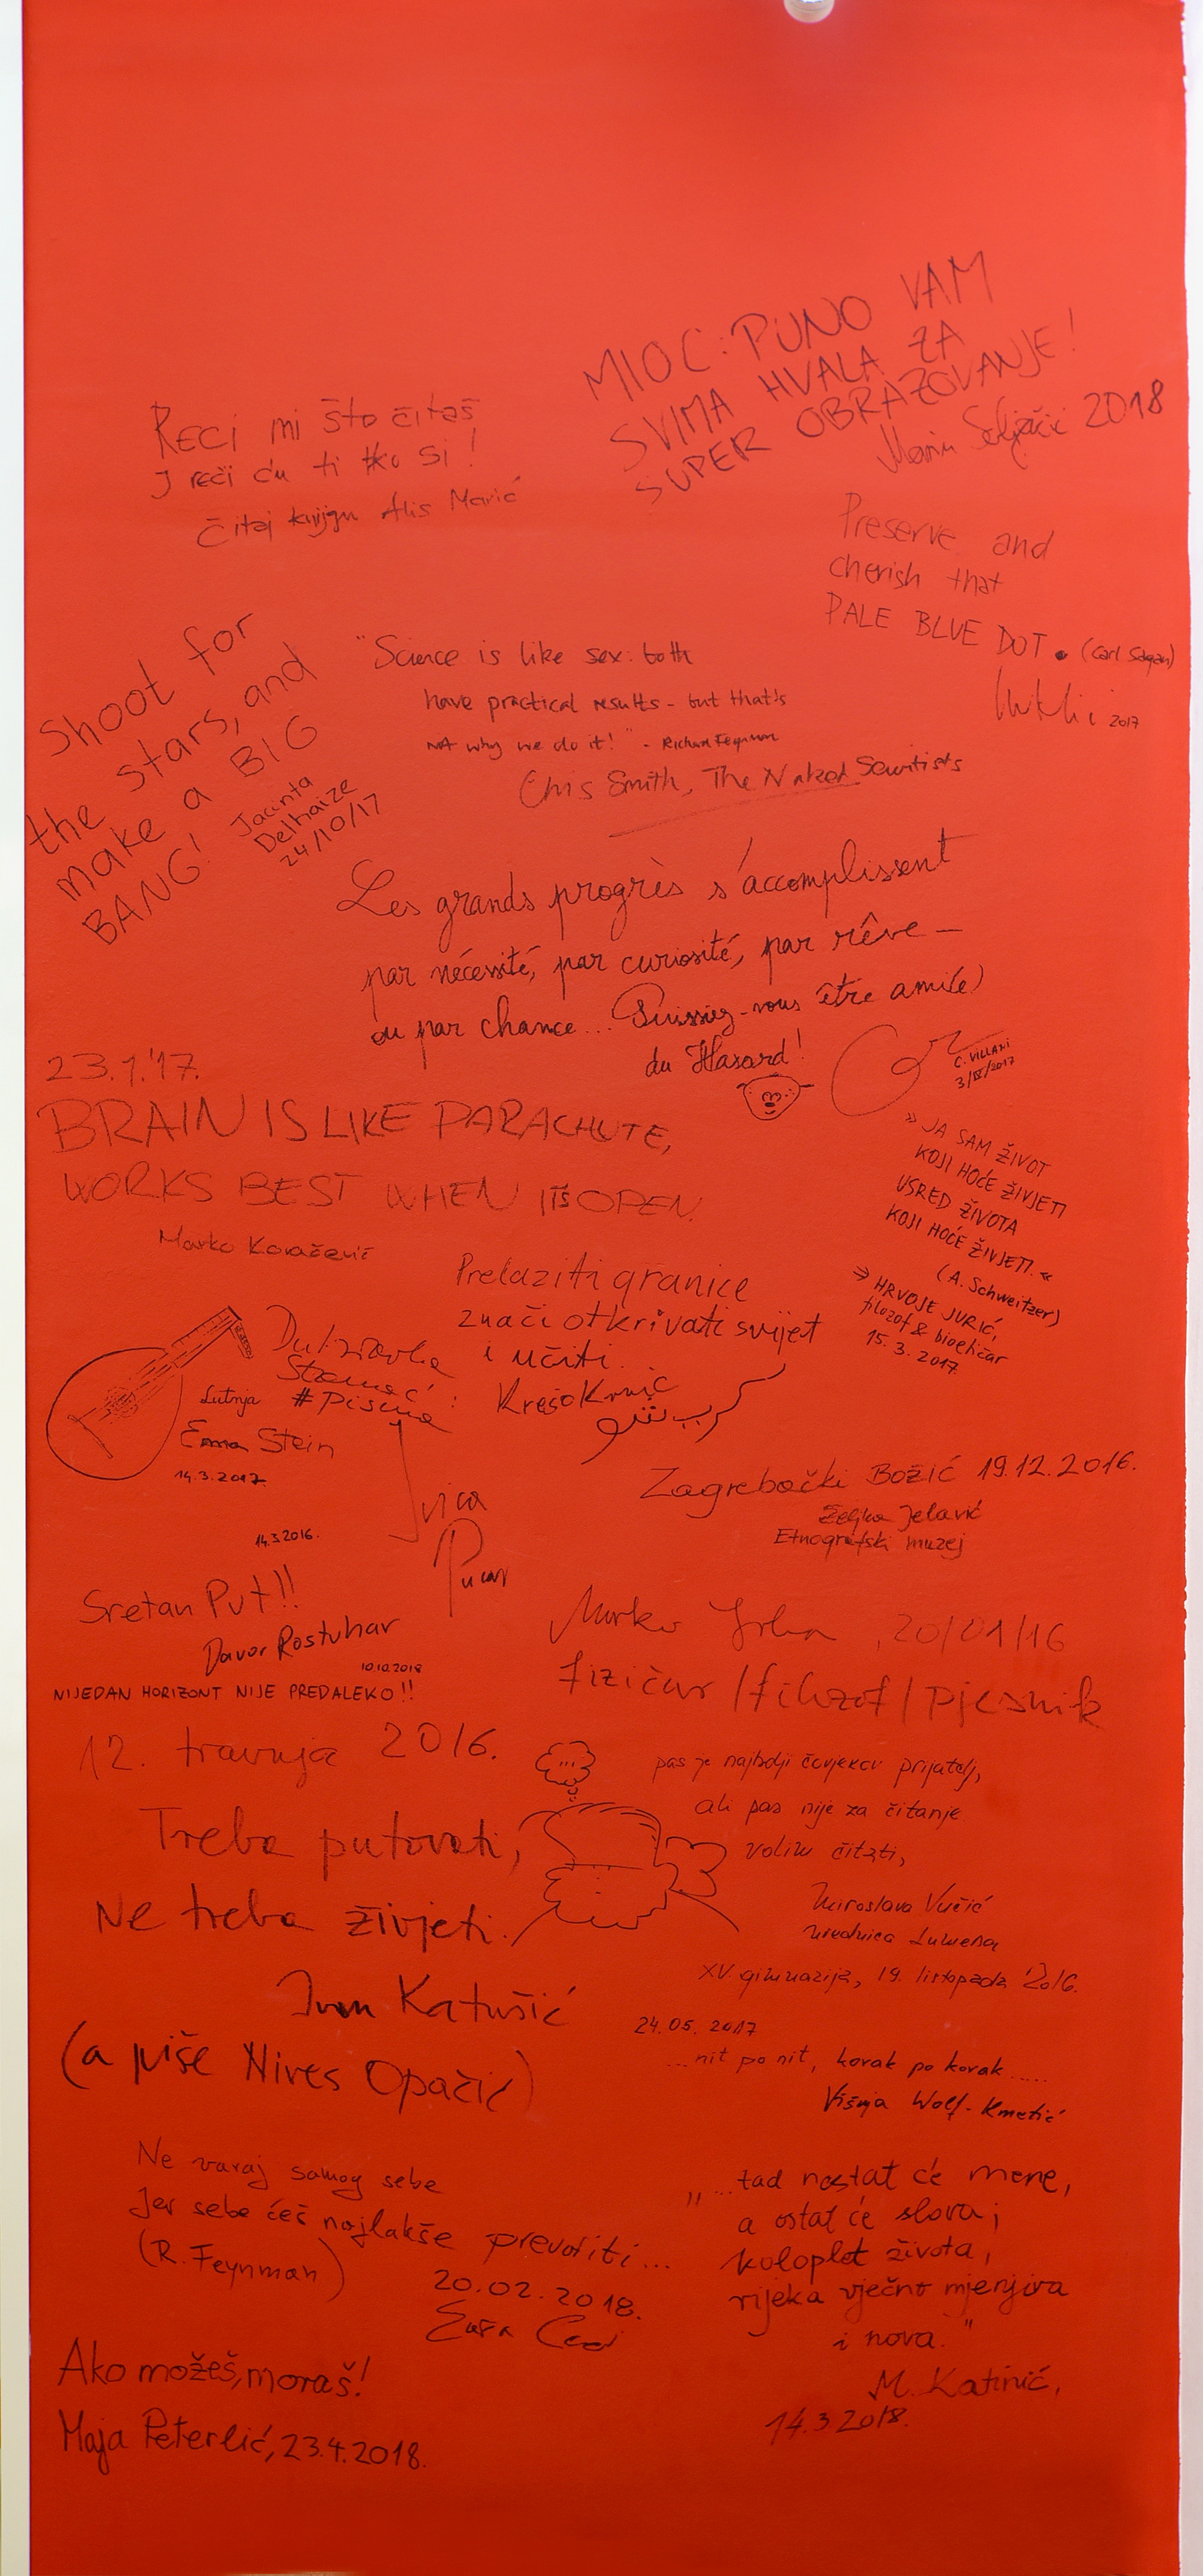 MIOC: PUNO VAM
SVIMA HVALA ZA
SUPER OBRAZOVANJE!
Marin 2018
RECI mi što čitaš
I reći ću ti tko si!
Čitaj knjigu Alis Marić
Preserve and
cherish that
PALE BLUE DOT. (Carl Sagan)
2017
Shoot for
the stars, and
make a BIG
BANG!
Jacinta
Delhaize
24/10/17
"Science is like sex: both
have practical results - but that's
not why we do it!" - Richard Feynman
Chris Smith, The Naked Scientists
Les grands progrès s'accomplissent
par nécessité, par curiosité, par rêve —
ou par chance... Puissiez-vous être ami(e)
du Hasard!
C. VILLANI
3/IV/2017
23.1.'17.
BRAIN IS LIKE PARACHUTE,
WORKS BEST WHEN ITS OPEN.
Marko Kovačević
» JA SAM ŽIVOT
KOJI HOĆE ŽIVJETI
USRED ŽIVOTA
KOJI HOĆE ŽIVJETI. «
(A. Schweitzer)
HRVOJE JURIĆ,
filozof & bioetičar
15. 3. 2017.
Prelaziti granice
znači otkrivati svijet
i učiti.
Krešo Krnić
Lutnja
# Pisma
Stein
14.3.2017.
Ivica
Pucar
Zagrebački Božić 19.12.2016.
Željka Jelavić
Etnografski muzej
14.3.2016.
Sretan Put!!
Davor Rostuhar
10.10.2018
NIJEDAN HORIZONT NIJE PREDALEKO!!
Mirko , 20/01/16
fizičar / filozof / pjesnik
12. travnja 2016.
Treba putovati,
Ne treba živjeti.
Ivan Katušić
(a piše Nives Opačić)
pas je najbolji čovjekov prijatelj,
ali pas nije za čitanje
volim čitati,
Miroslava Vučić
urednica Lumena
XV. gimnazija, 19. listopada 2016.
24.05.2017
...nit po nit, korak po korak.....
Višnja Wolf-Kmetić
Ne varaj samog sebe
Jer sebe ćeš najlakše prevariti...
(R. Feynman)
20.02.2018.
„...tad nestat će mene,
a ostat će slova;
koloplet života,
rijeka vječno mjenjiva
i nova."
M. Katinić,
14.3.2018.
Ako možeš, moraš!
Maja Peterlić, 23.4.2018.